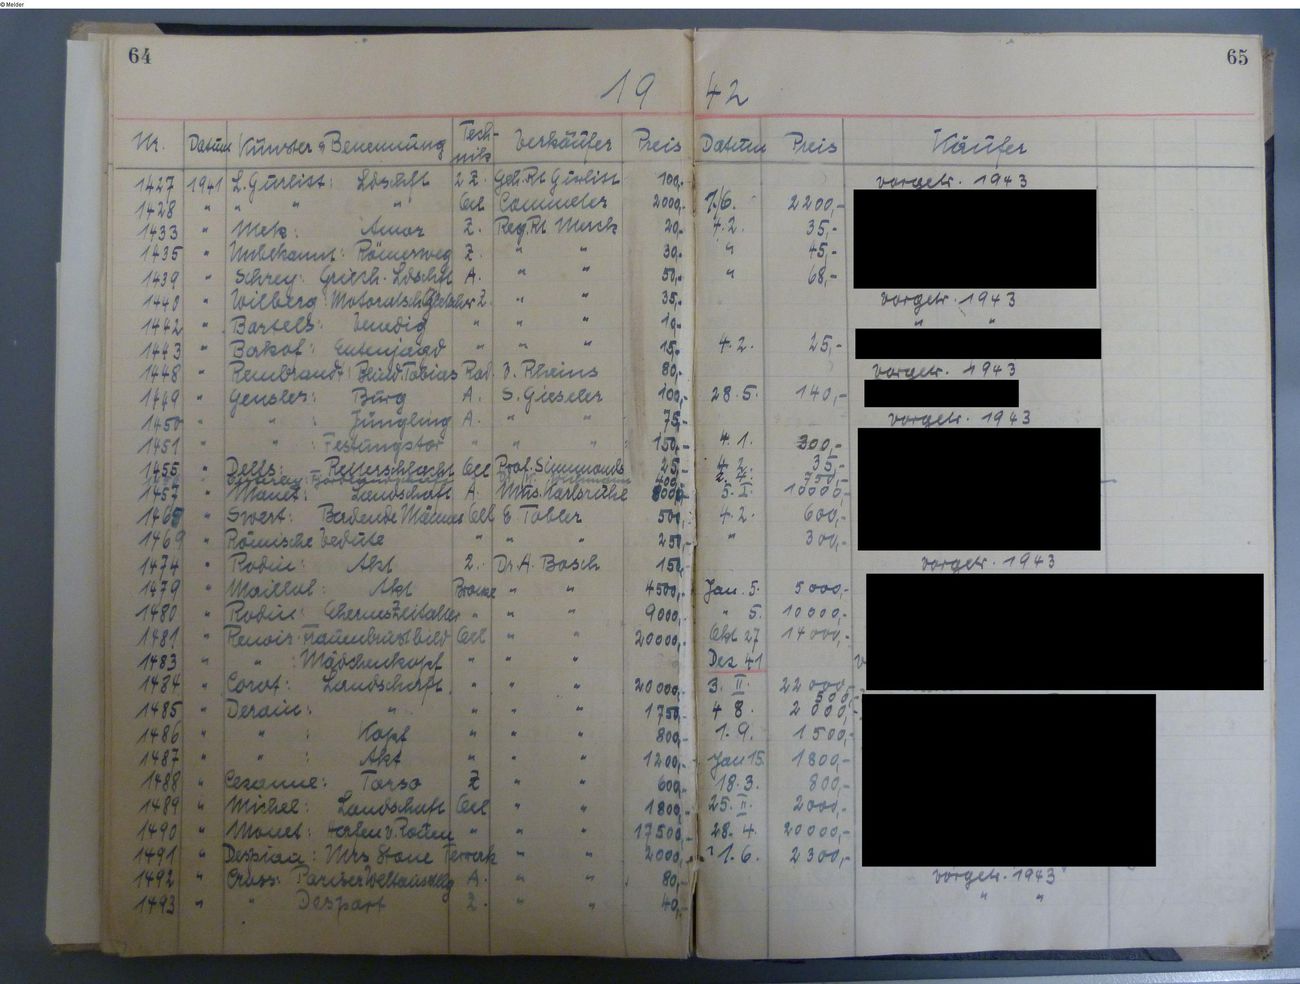 © Meider
64
65
19 42
Nr. Datum Künstler & Benennung Technik Verkäufer Preis Datum Preis Käufer
1427 1941 L. Gurlitt: Ldschft Z. Geh. Rt Gurlitt 100,- vorgetr. 1943
1428 " " " " Oel Commeter 2000,- 7/6. 2200,-
1433 " Mek: Amor Z. Reg. Rt Merck 20,- 4.2. 35,-
1435 " Unbekannt: Römerweg Z. " " 30,- " 45,-
1439 " Schrey: Griech. Ldschft A. " " 50,- " 68,-
1440 " Wilberg: Z. " " 35,- vorgetr. 1943
1442 " Bartels: Venedig " " " 10,- " "
1443 " Entenjagd " " " 15,- 4.2. 25,-
1448 " Rembrandt: Blind. Tobias Rad. v. Rheins 80,- vorgetr. 1943
1449 " Gensler: Burg A. S. Gieseler 100,- 28.5. 140,-
1450 " " : Jüngling A. " " 75,- vorgetr. 1943
1451 " " : Festungstor " " " 150,- 4.1. 300,-
1455 " Reiterschlacht Oel Prof. Simmonds 25,- 4.2. 35,-
2.4. 750,-
1457 " Manet: Landschaft A. Mus. Karlsruhe 8000,- 5.I. 10000,-
1465 " Swert: Badende Männer Oel E. Tobler 500,- 4.2. 600,-
1469 " Römische Vedute " " " 250,- " 300,-
1474 " Rodin: Akt Z. Dr. A. Bosch 150,- vorgetr. 1943
1479 " Maillol: Akt Bronze " " 4500,- Jan. 5. 5000,-
1480 " Rodin: Ehernes Zeitalter " " " 9000,- " 5. 10000,-
1481 " Renoir: Frauenbrustbild Oel " " 20000,- Okt 27 14000,-
1483 " " : Mädchenkopf " " " Dez 41
1484 " Corot: Landschaft " " " 20000,- 3. II. 22000,-
500,-
1485 " Derain: " " " " 1750,- 4 8. 2000,-
1486 " " : Kopf " " " 800,- 1.9. 1500,-
1487 " " : Akt " " " 1200,- Jan 15. 1800,-
1488 " Cezanne: Torso Z " " 600,- 18.3. 800,-
1489 " Michel: Landschaft Oel " " 1800,- 25. II. 2000,-
1490 " Monet: " " " 17500,- 28.4. 20000,-
1491 " Despiau: Mrs Stone " " 2000,- 1.6. 2300,-
1492 " Cross: Pariser Weltausstllg A. " " 80,- vorgetr. 1943
1493 " " Z. " " 40,- " "